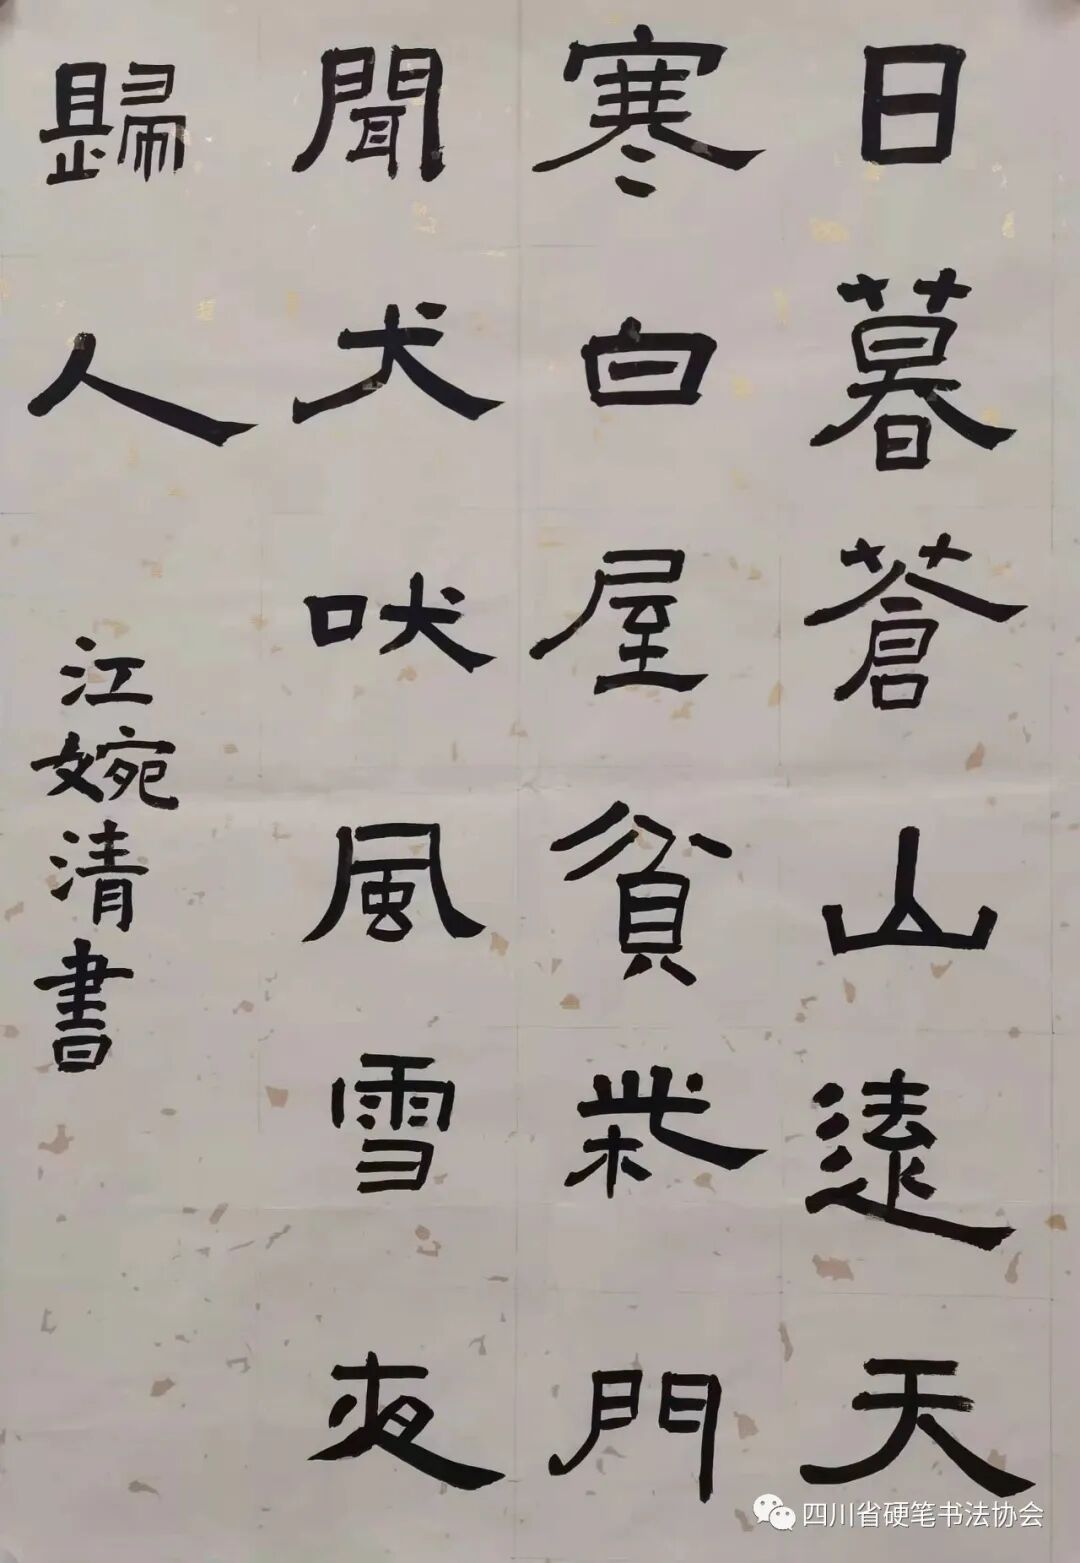 日暮蒼山遠天
寒白屋貧柴門
聞犬吠風雪夜
歸人
江婉清書
四川省硬笔书法协会